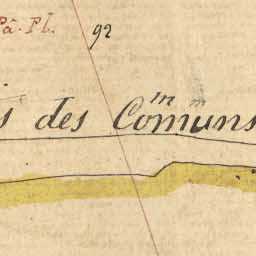 Pâ. Pl.
92
s des Com̅uns